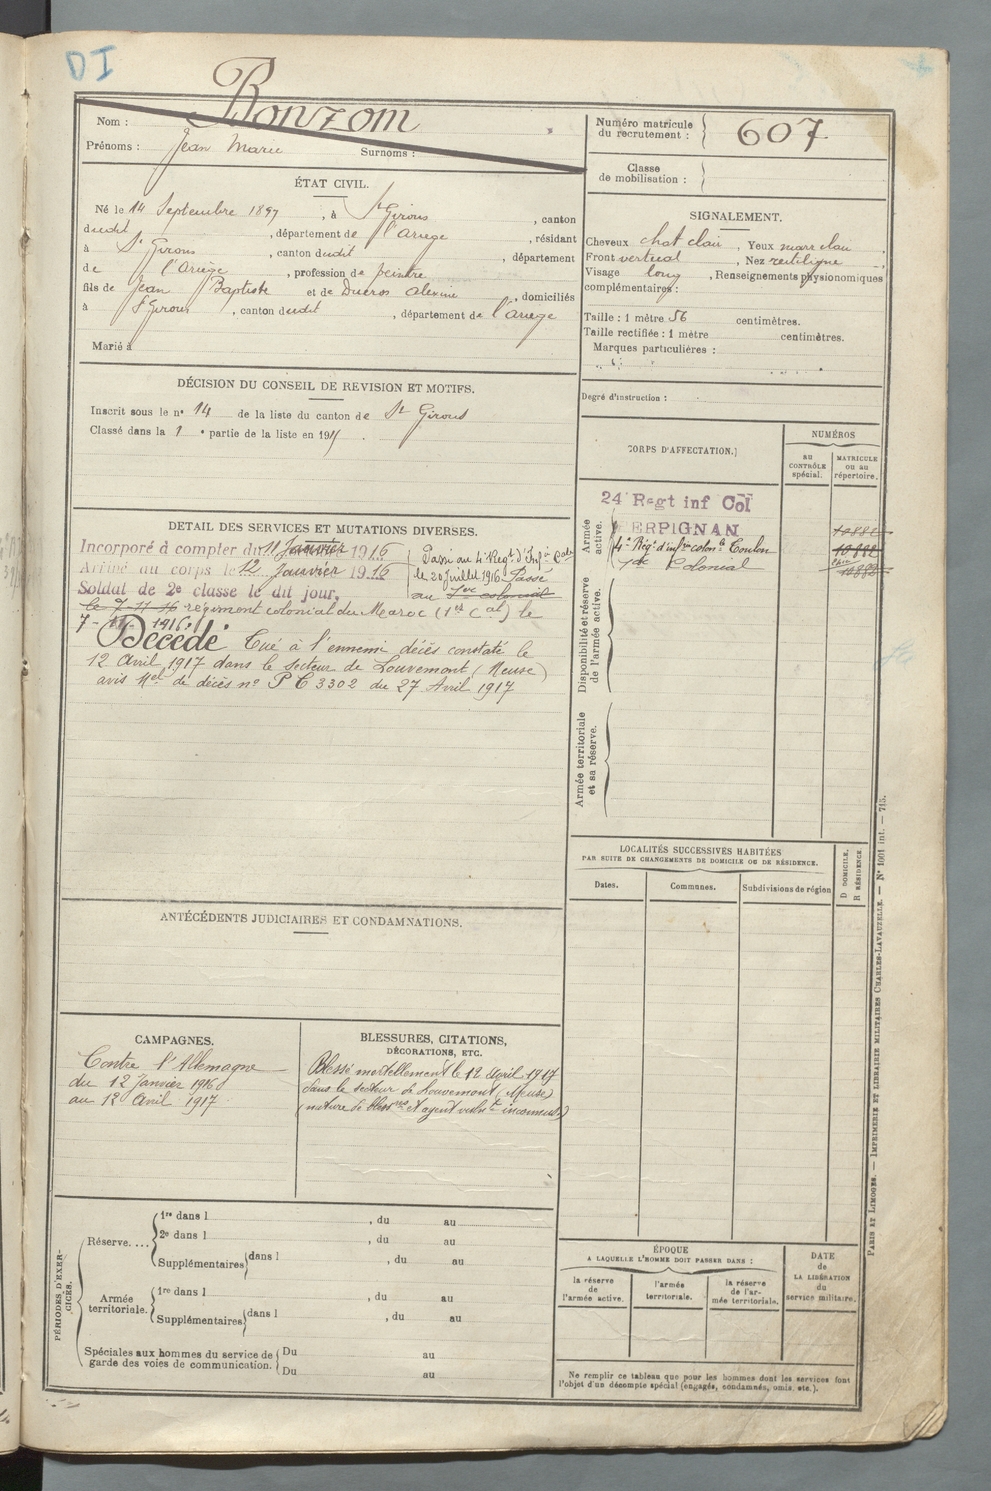 DI
Bonzom
Nom :
Prénoms : Jean Marie Surnoms :
Numéro matricule
du recrutement : 607
Classe
de mobilisation :
ÉTAT CIVIL.
Né le 14 Septembre 1897, à St Girons, canton
dudit, département de l'Ariège, résidant
à St Girons, canton dudit, département
de l'Ariège, profession de peintre
fils de Jean Baptiste et de Ducros Alexine, domiciliés
à St Girons, canton dudit, département de l'Ariège
Marié à
SIGNALEMENT.
Cheveux chat clair, Yeux marr clair
Front vertical, Nez rectiligne
Visage long, Renseignements physionomiques
complémentaires :
Taille : 1 mètre 56 centimètres.
Taille rectifiée : 1 mètre centimètres.
Marques particulières :
Degré d'instruction :
DÉCISION DU CONSEIL DE REVISION ET MOTIFS.
Inscrit sous le n° 14 de la liste du canton de St Girons
Classé dans la 1e partie de la liste en 191
CORPS D'AFFECTATION.
NUMÉROS
au
CONTRÔLE
spécial.
MATRICULE
ou au
répertoire.
Armée
active.
24 Regt inf Col
PERPIGNAN
4e Régt d'infrie colonle Toulon
Colonial
10882
10882
10882
Disponibilité et réserve
de l'armée active.
Armée territoriale
et sa réserve.
DETAIL DES SERVICES ET MUTATIONS DIVERSES.
Incorporé à compter du 11 Janvier 1916
Arrivé au corps le 12 Janvier 1916
Soldat de 2e classe le dit jour,
Passé au 4e Regt d'Infie Cole
le 20 Juillet 1916. Passé
au colonial
le 7-11-16 régiment colonial du Maroc (1er Cal) le
7-11-1916.
Décédé Tué à l'ennemi décès constaté le
12 Avril 1917 dans le secteur de Louvemont (Meuse)
avis Mel de décès n° PC 3302 du 27 Avril 1917
LOCALITÉS SUCCESSIVES HABITÉES
PAR SUITE DE CHANGEMENTS DE DOMICILE OU DE RÉSIDENCE.
Dates.
Communes.
Subdivisions de région
D DOMICILE.
R RÉSIDENCE.
ANTÉCÉDENTS JUDICIAIRES ET CONDAMNATIONS.
CAMPAGNES.
Contre l'Allemagne
du 12 Janvier 1916
au 12 Avril 1917
BLESSURES, CITATIONS,
DÉCORATIONS, ETC.
Blessé mortellement le 12 Avril 1917
dans le secteur de Louvemont (Meuse)
(nature de blessres et agent vulnt inconnus)
PÉRIODES D'EXER-
CICES.
Réserve....
1re dans l , du au
2e dans l , du au
Supplémentaires dans l , du au
Armée
territoriale.
1re dans l , du au
Supplémentaires dans l , du au
Spéciales aux hommes du service de
garde des voies de communication.
Du au
Du au
ÉPOQUE
A LAQUELLE L'HOMME DOIT PASSER DANS :
la réserve
de
l'armée active.
l'armée
territoriale.
la réserve
de l'ar-
mée territoriale.
DATE
de
LA LIBÉRATION
du
service militaire.
Ne remplir ce tableau que pour les hommes dont les services font
l'objet d'un décompte spécial (engagés, condamnés, omis, etc.).
PARIS ET LIMOGES. — IMPRIMERIE ET LIBRAIRIE MILITAIRES CHARLES-LAVAUZELLE. — N° 1001 int. — 715.